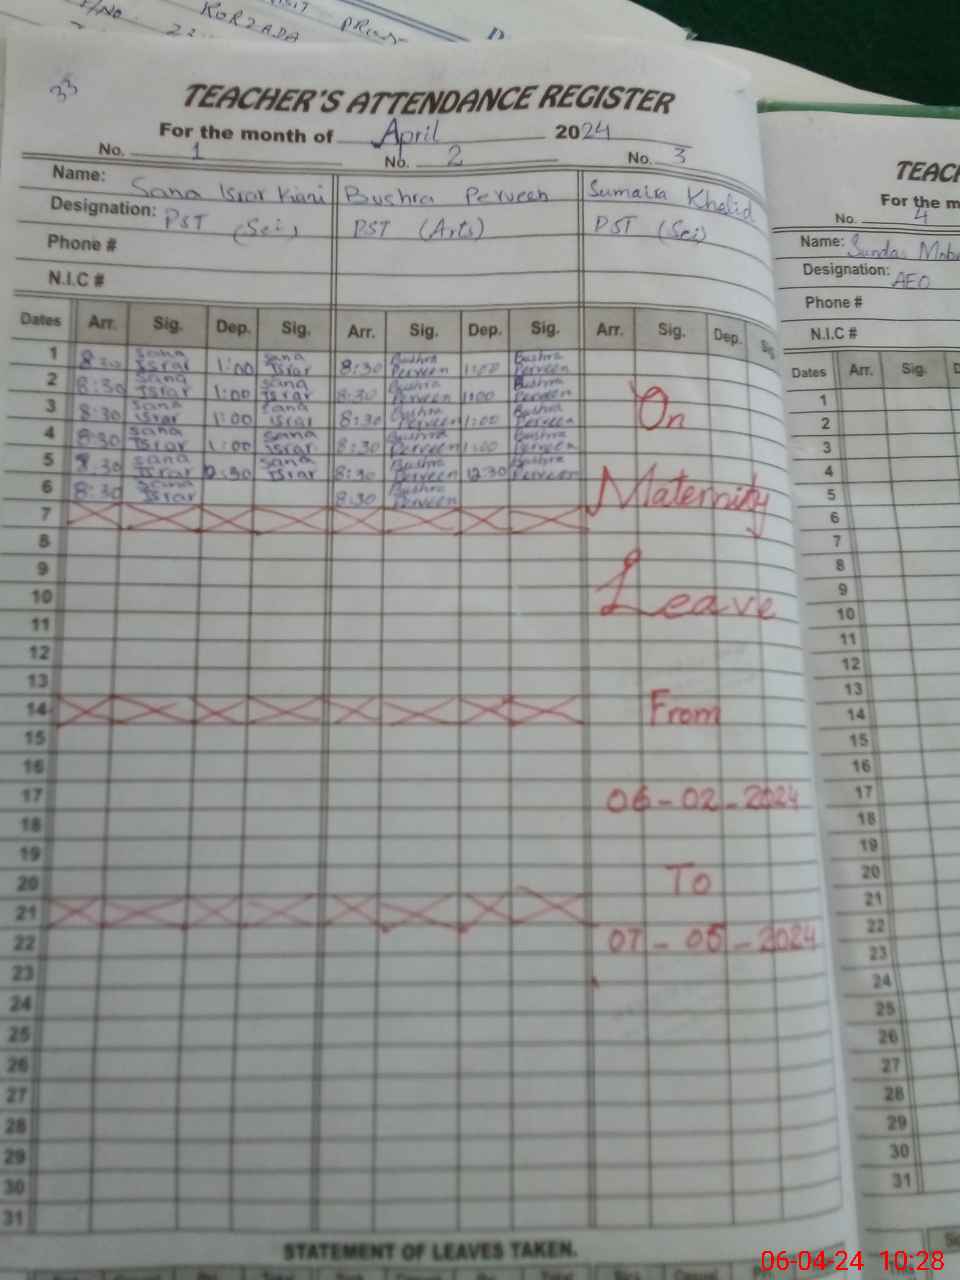 KORZADA
33
TEACHER'S ATTENDANCE REGISTER
For the month of April 2024
No. 1 No. 2 No. 3
Name: Sana Israr Kiani Bushra Perveen Sumaira Khalid
Designation: PST (Sci) PST (Arts) PST (Sci)
Phone #
N.I.C #
Dates Arr. Sig. Dep. Sig. Arr. Sig. Dep. Sig. Arr. Sig. Dep. Sig.
1 8:30 Sana Israr 1:00 Sana Israr 8:30 Bushra Perveen 1:00 Bushra Perveen
2 8:30 Sana Israr 1:00 Sana Israr 8:30 Bushra Perveen 1:00 Bushra Perveen
3 8:30 Sana Israr 1:00 Sana Israr 8:30 Bushra Perveen 1:00 Bushra Perveen
4 8:30 Sana Israr 1:00 Sana Israr 8:30 Bushra Perveen 1:00 Bushra Perveen
5 8:30 Sana Israr 12:30 Sana Israr 8:30 Bushra Perveen 12:30 Bushra Perveen
6 8:30 Sana Israr 8:30 Bushra Perveen
7
8
9
10
11
12
13
14
15
16
17
18
19
20
21
22
23
24
25
26
27
28
29
30
31
On
Maternity
Leave
From
06-02-2024
To
07-05-2024
STATEMENT OF LEAVES TAKEN.
TEACH
For the m
No. 4
Name: Sundas
Designation: AEO
Phone #
N.I.C #
Dates Arr. Sig. D
1
2
3
4
5
6
7
8
9
10
11
12
13
14
15
16
17
18
19
20
21
22
23
24
25
26
27
28
29
30
31
06-04-24 10:28